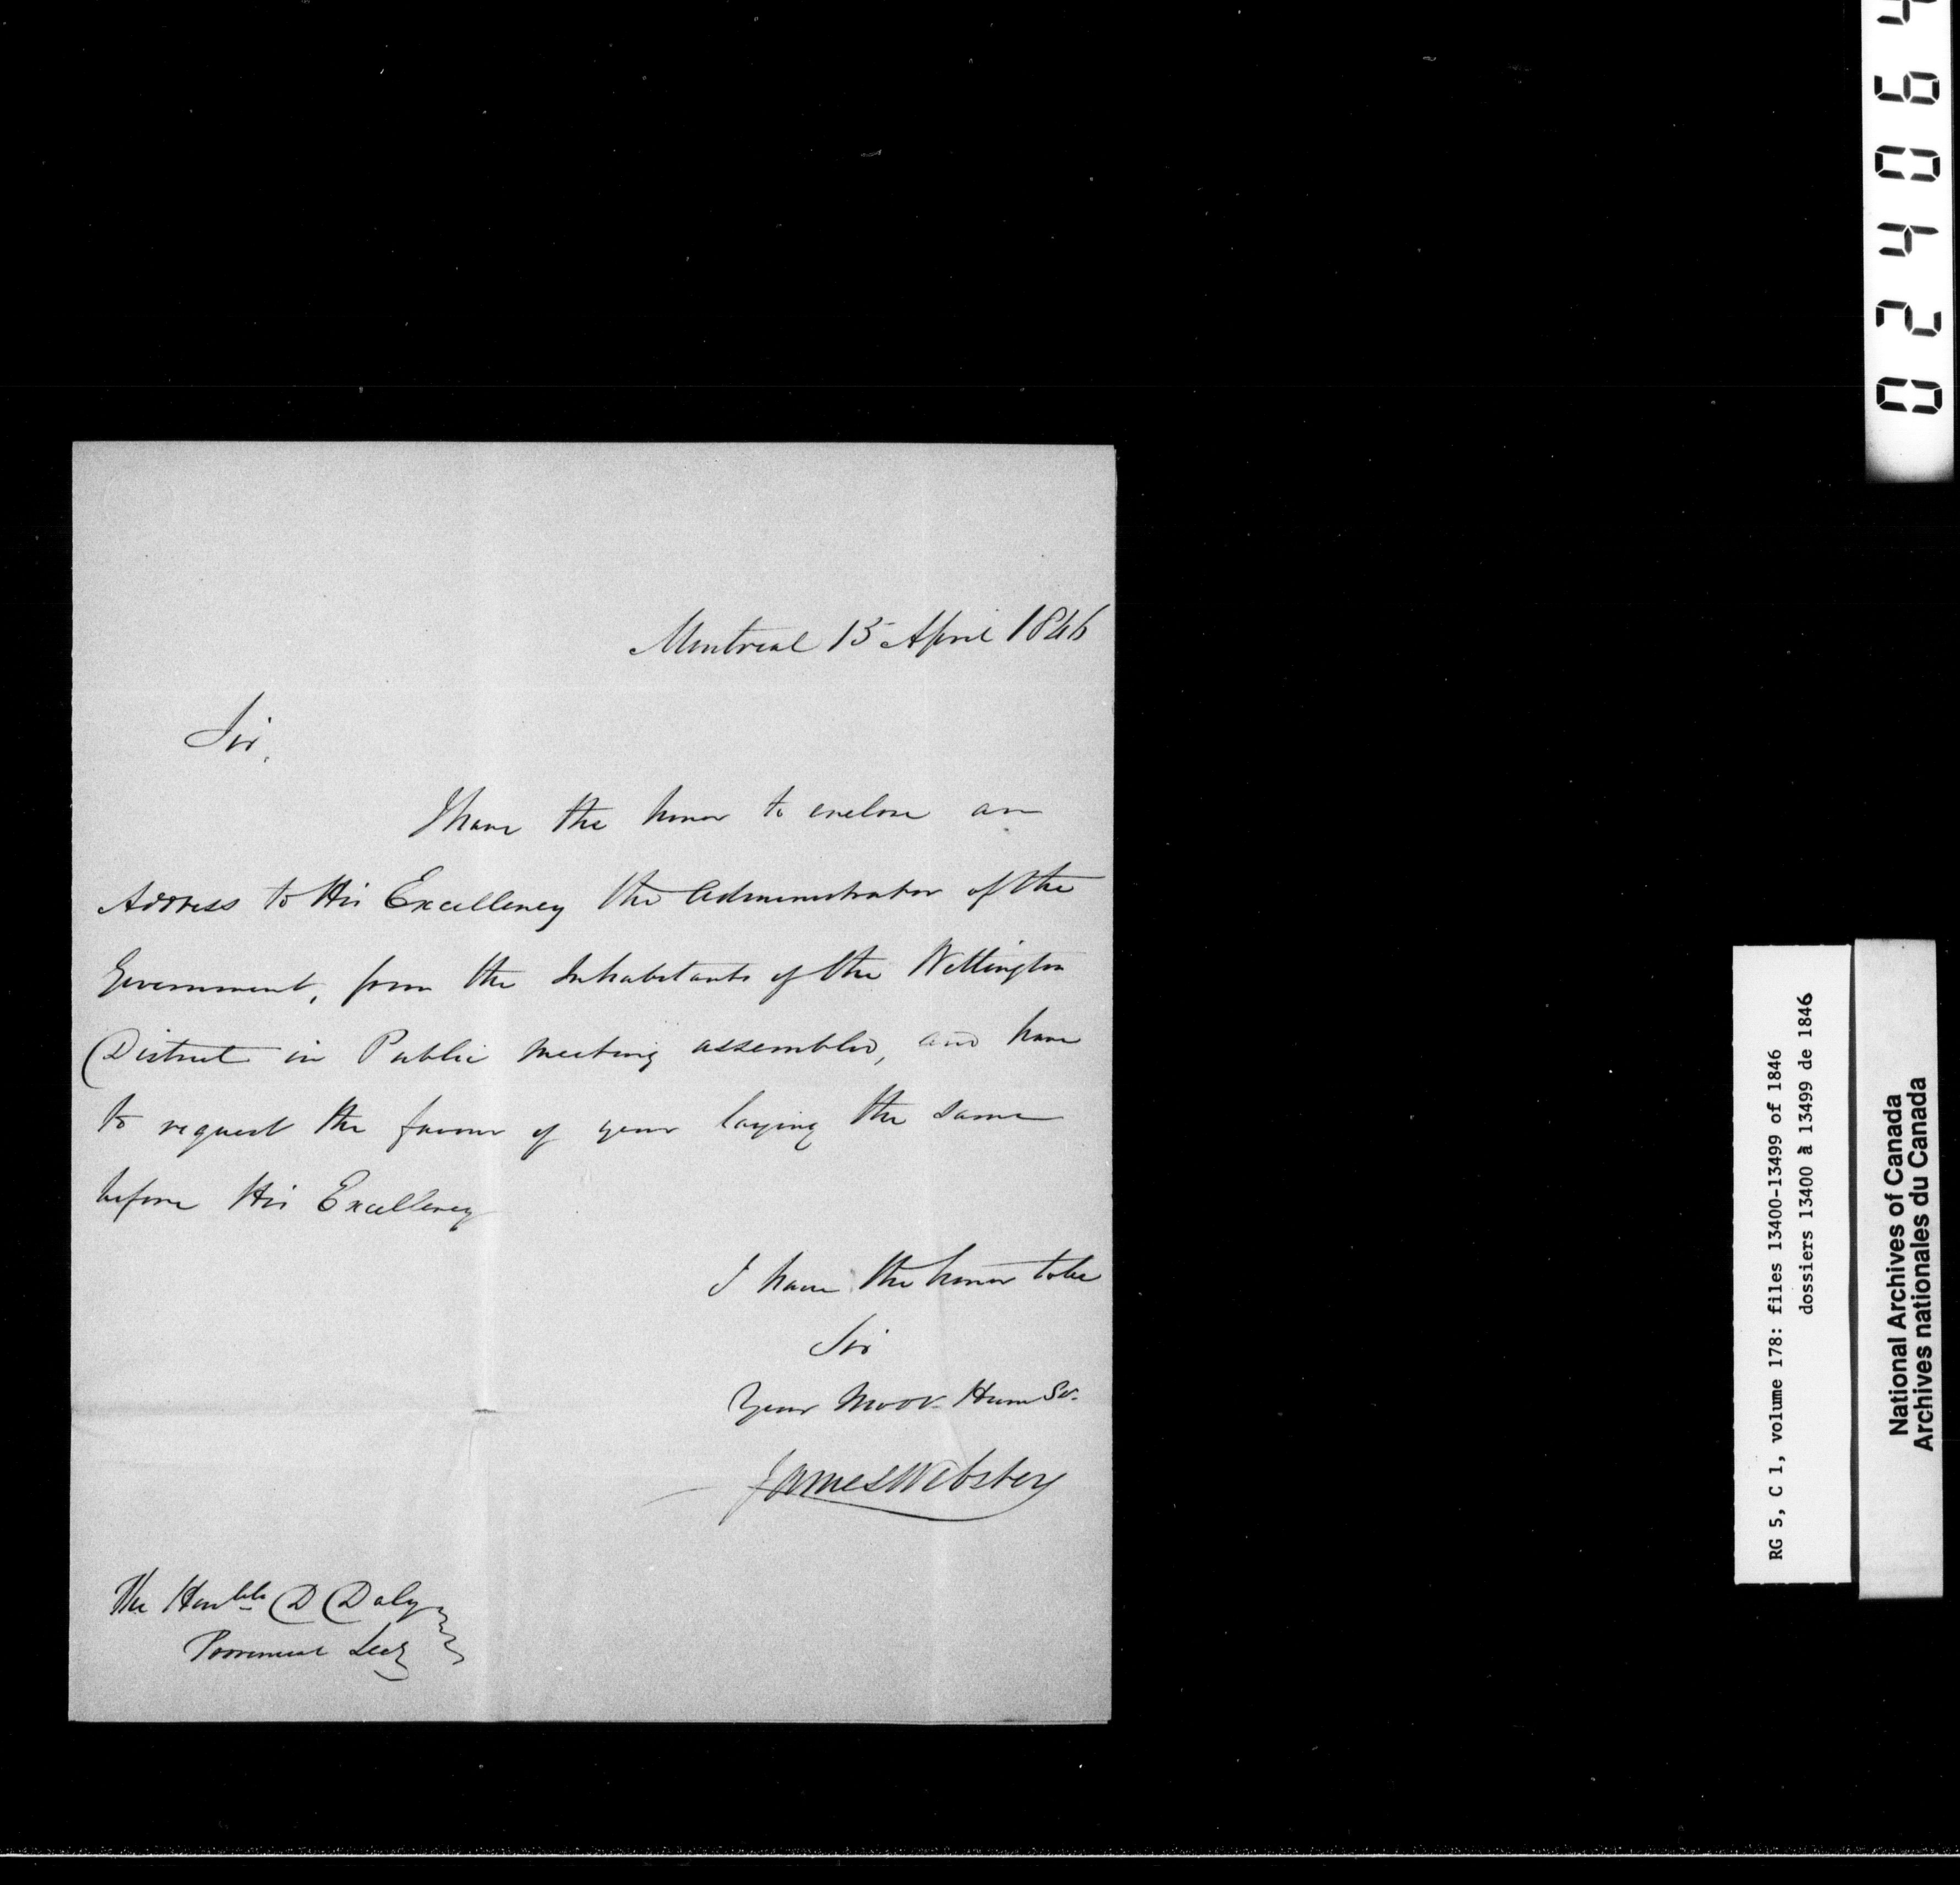 Montreal 15 April 1846
Sir,
I have the honor to enclose an
Address to His Excellency the Administrator of the
Government, from the Inhabitants of the Wellington
District in Public Meeting assembled, and have
to request the favour of your laying the same
before His Excellency
I have the honor to be
Sir
Your Hum Sr.
James Webster
The Honble D Daly
Provincial Secy
024064
RG 5, C 1, volume 178: files 13400-13499 of 1846
dossiers 13400 à 13499 de 1846
National Archives of Canada
Archives nationales du Canada